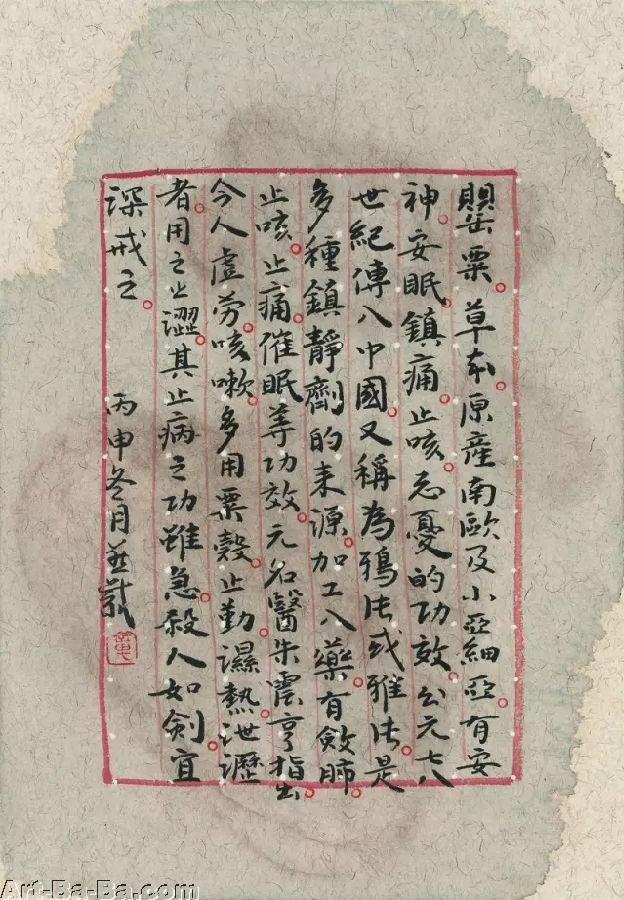 罌粟草本原產南歐及小亞細亞有安
神安眠鎮痛止咳忘憂的功效公元七八
世紀傳入中國又稱為鴉片或雅片是
多種鎮靜劑的来源加工入藥有斂肺
止咳止痛催眠等功效元名醫朱震亨指出
今人虛勞咳嗽多用粟殼止勤濕熱泄瀝
者用之止澀其止病之功雖急殺人如劍宜
深戒之
丙申冬月
Art-Ba-Ba.com